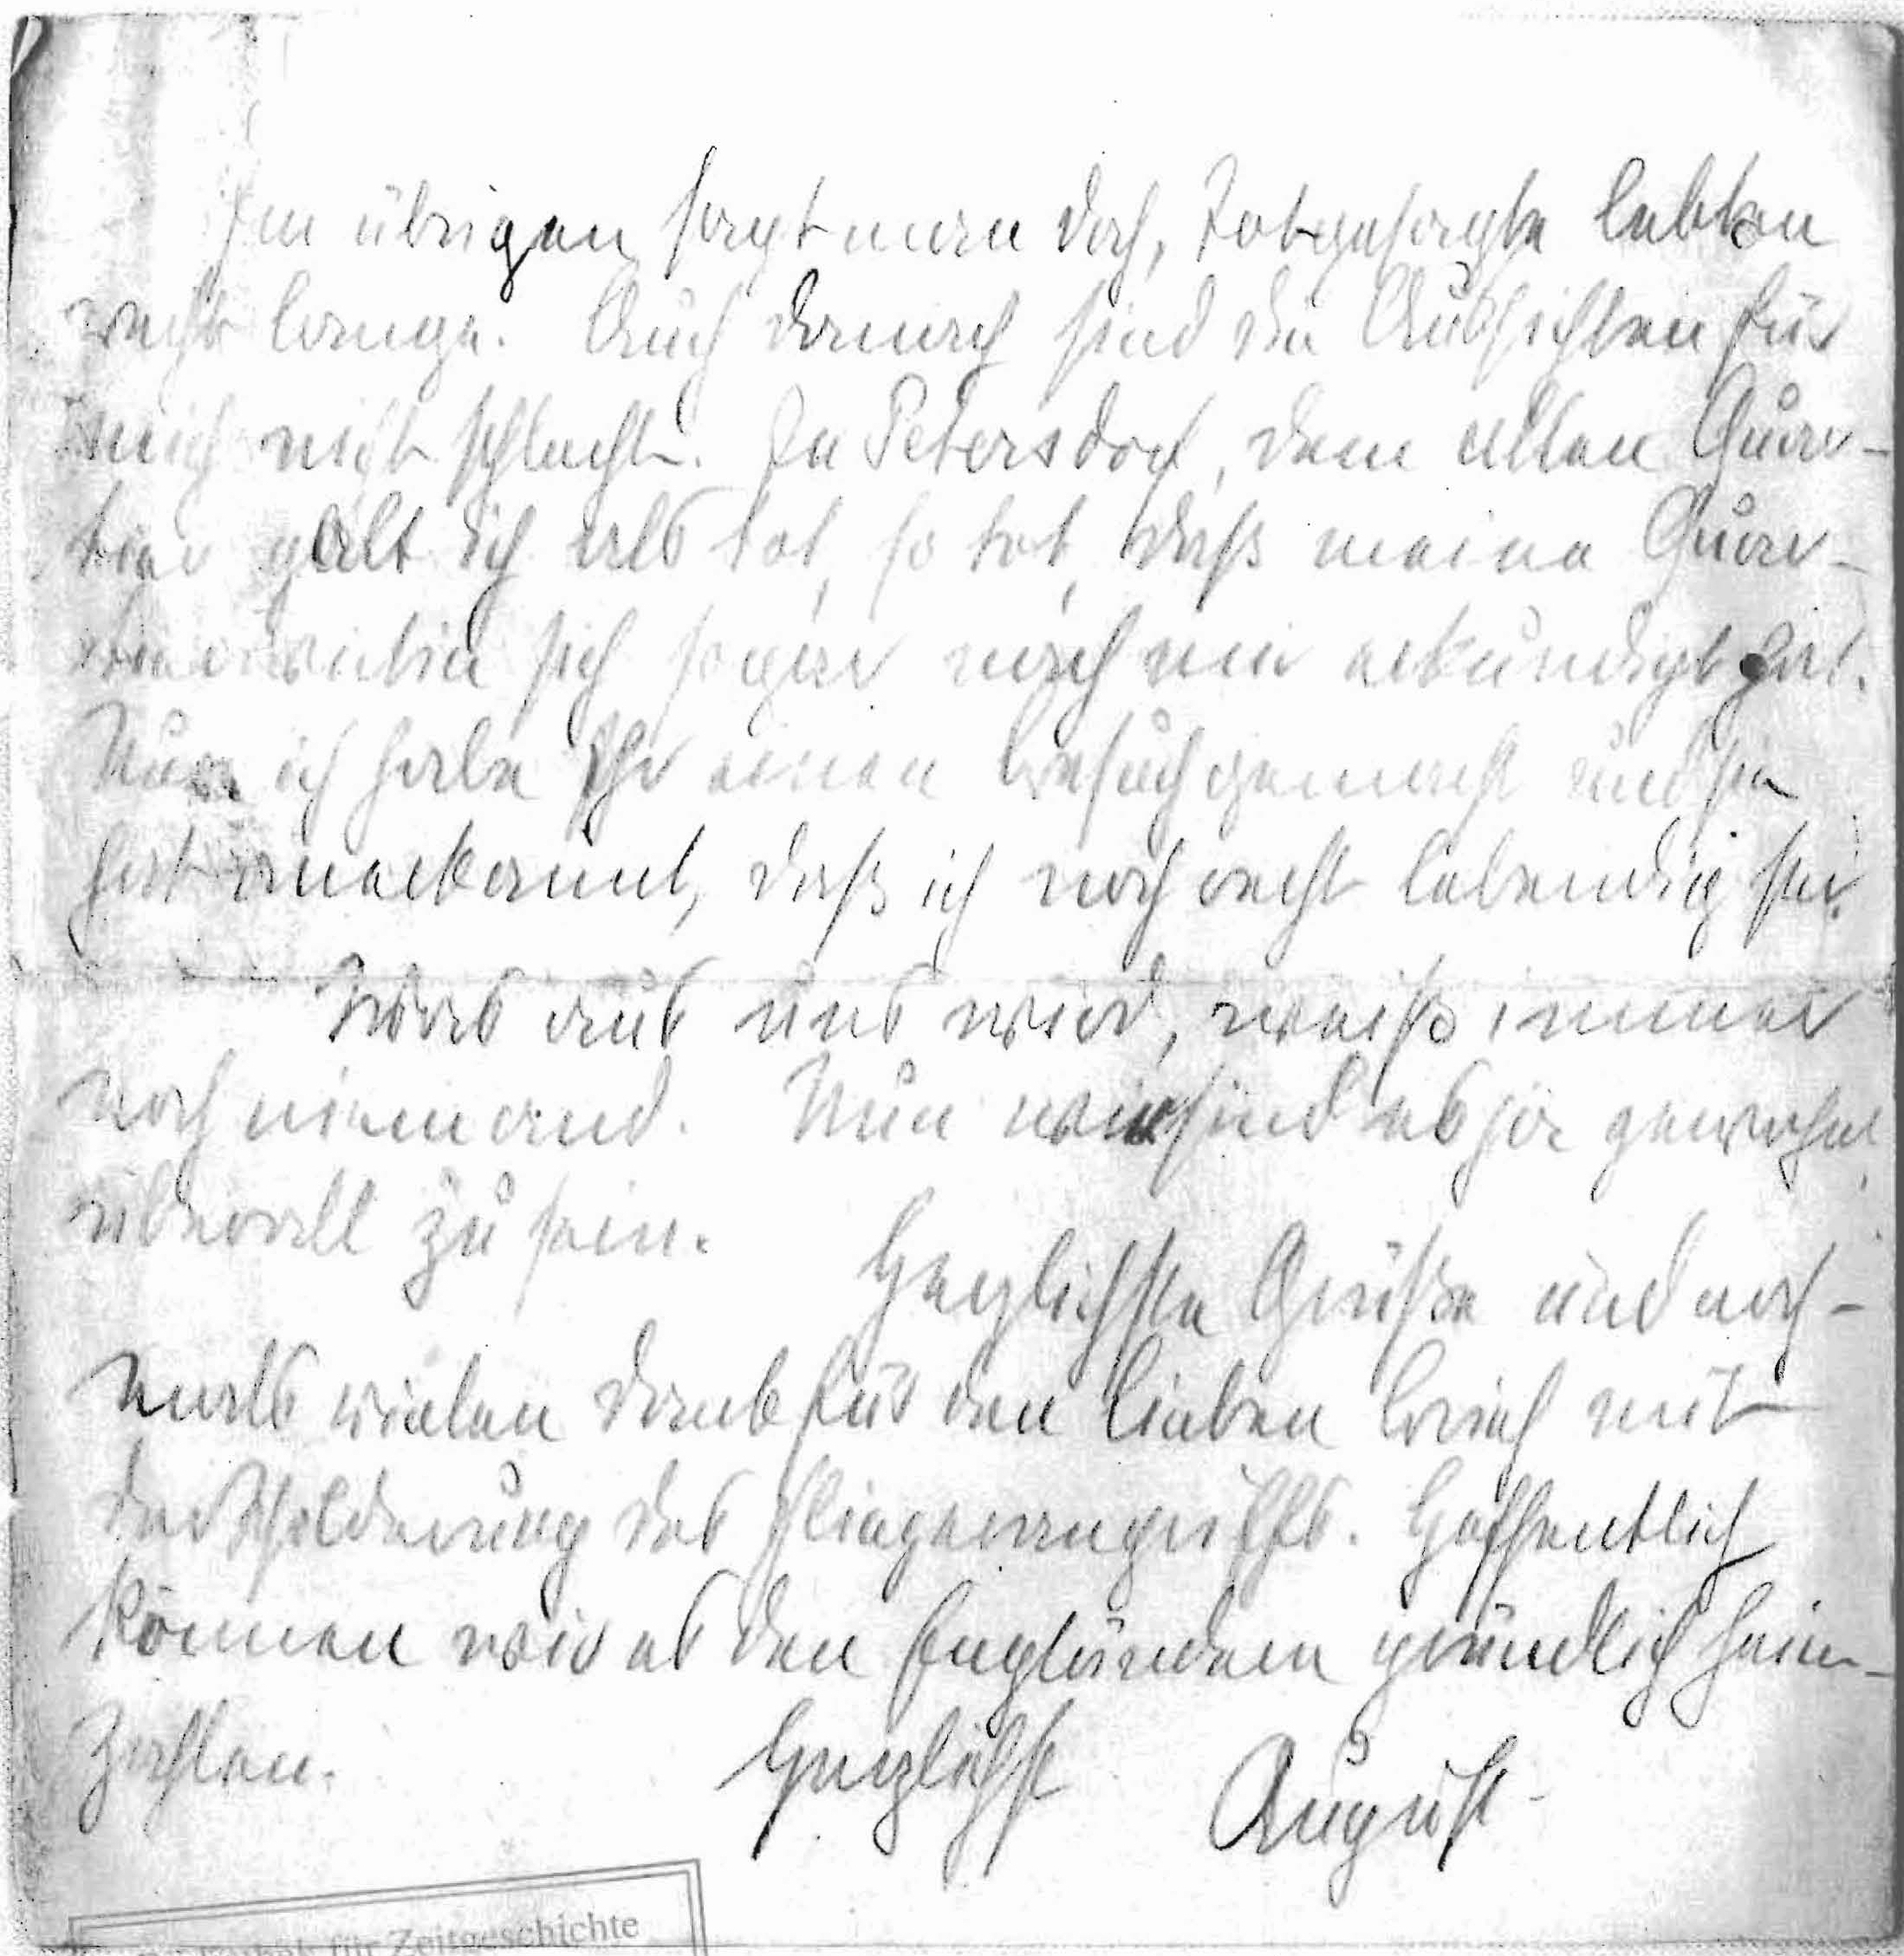 Im übrigen sagt man doch, Totgesagte lebten
recht lange. Auch danach sind die Aussichten für
mich nicht schlecht. In Petersdorf, dem alten Quar-
tier galt ich als tot, so tot, daß meine Quar-
tierwirtin sich sogar nach mir erkundigt hat.
Nun ich habe ihr einen Besuch gemacht und sie
hat anerkannt, daß ich noch recht lebendig sei.
Was aus uns wird, weiß immer
noch niemand. Nun wir sind es ja gewohnt
überall zu sein.
Herzlichste Grüße und noch-
mals vielen Dank für den lieben Brief mit
der Schilderung des Fliegerangriffs. Hoffentlich
können wir es den Engländern gründlich heim-
zahlen.
Herzlichst August
für Zeitgeschichte